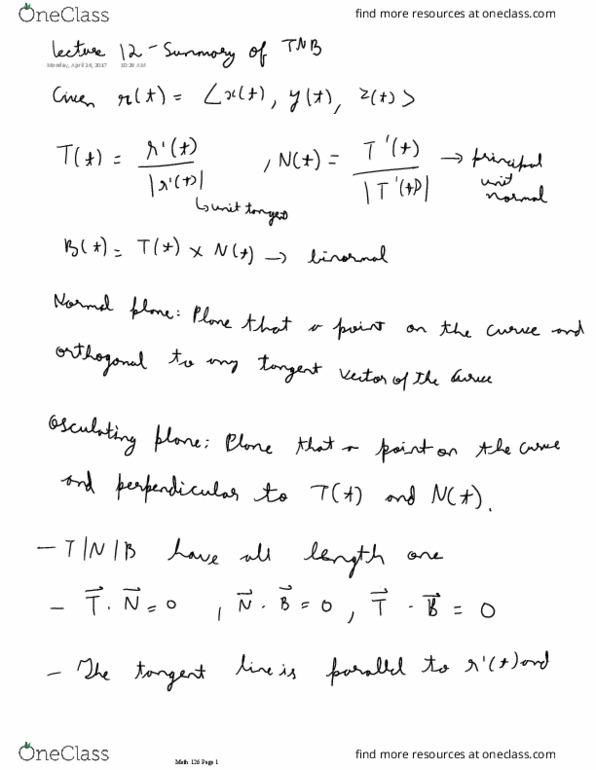 OneClass
find more resources at oneclass.com
Lecture 12 - Summary of TNB
Monday, April 24, 2017 10:29 AM
Given r(t) = <x(t), y(t), z(t)>
T(t) = r'(t) / |r'(t)| , N(t) = T'(t) / |T'(t)| → principal unit normal
↳ unit tangent
B(t) = T(t) × N(t) → binormal
Normal plane: Plane that a point on the curve and
orthogonal to any tangent vector of the curve
Osculating plane: Plane that a point on the curve
and perpendicular to T(t) and N(t).
- T/N/B have all length one
- T⃗ · N⃗ = 0 , N⃗ · B⃗ = 0 , T⃗ · B⃗ = 0
- The tangent line is parallel to r'(t) and
OneClass
Math 126 Page 1
find more resources at oneclass.com